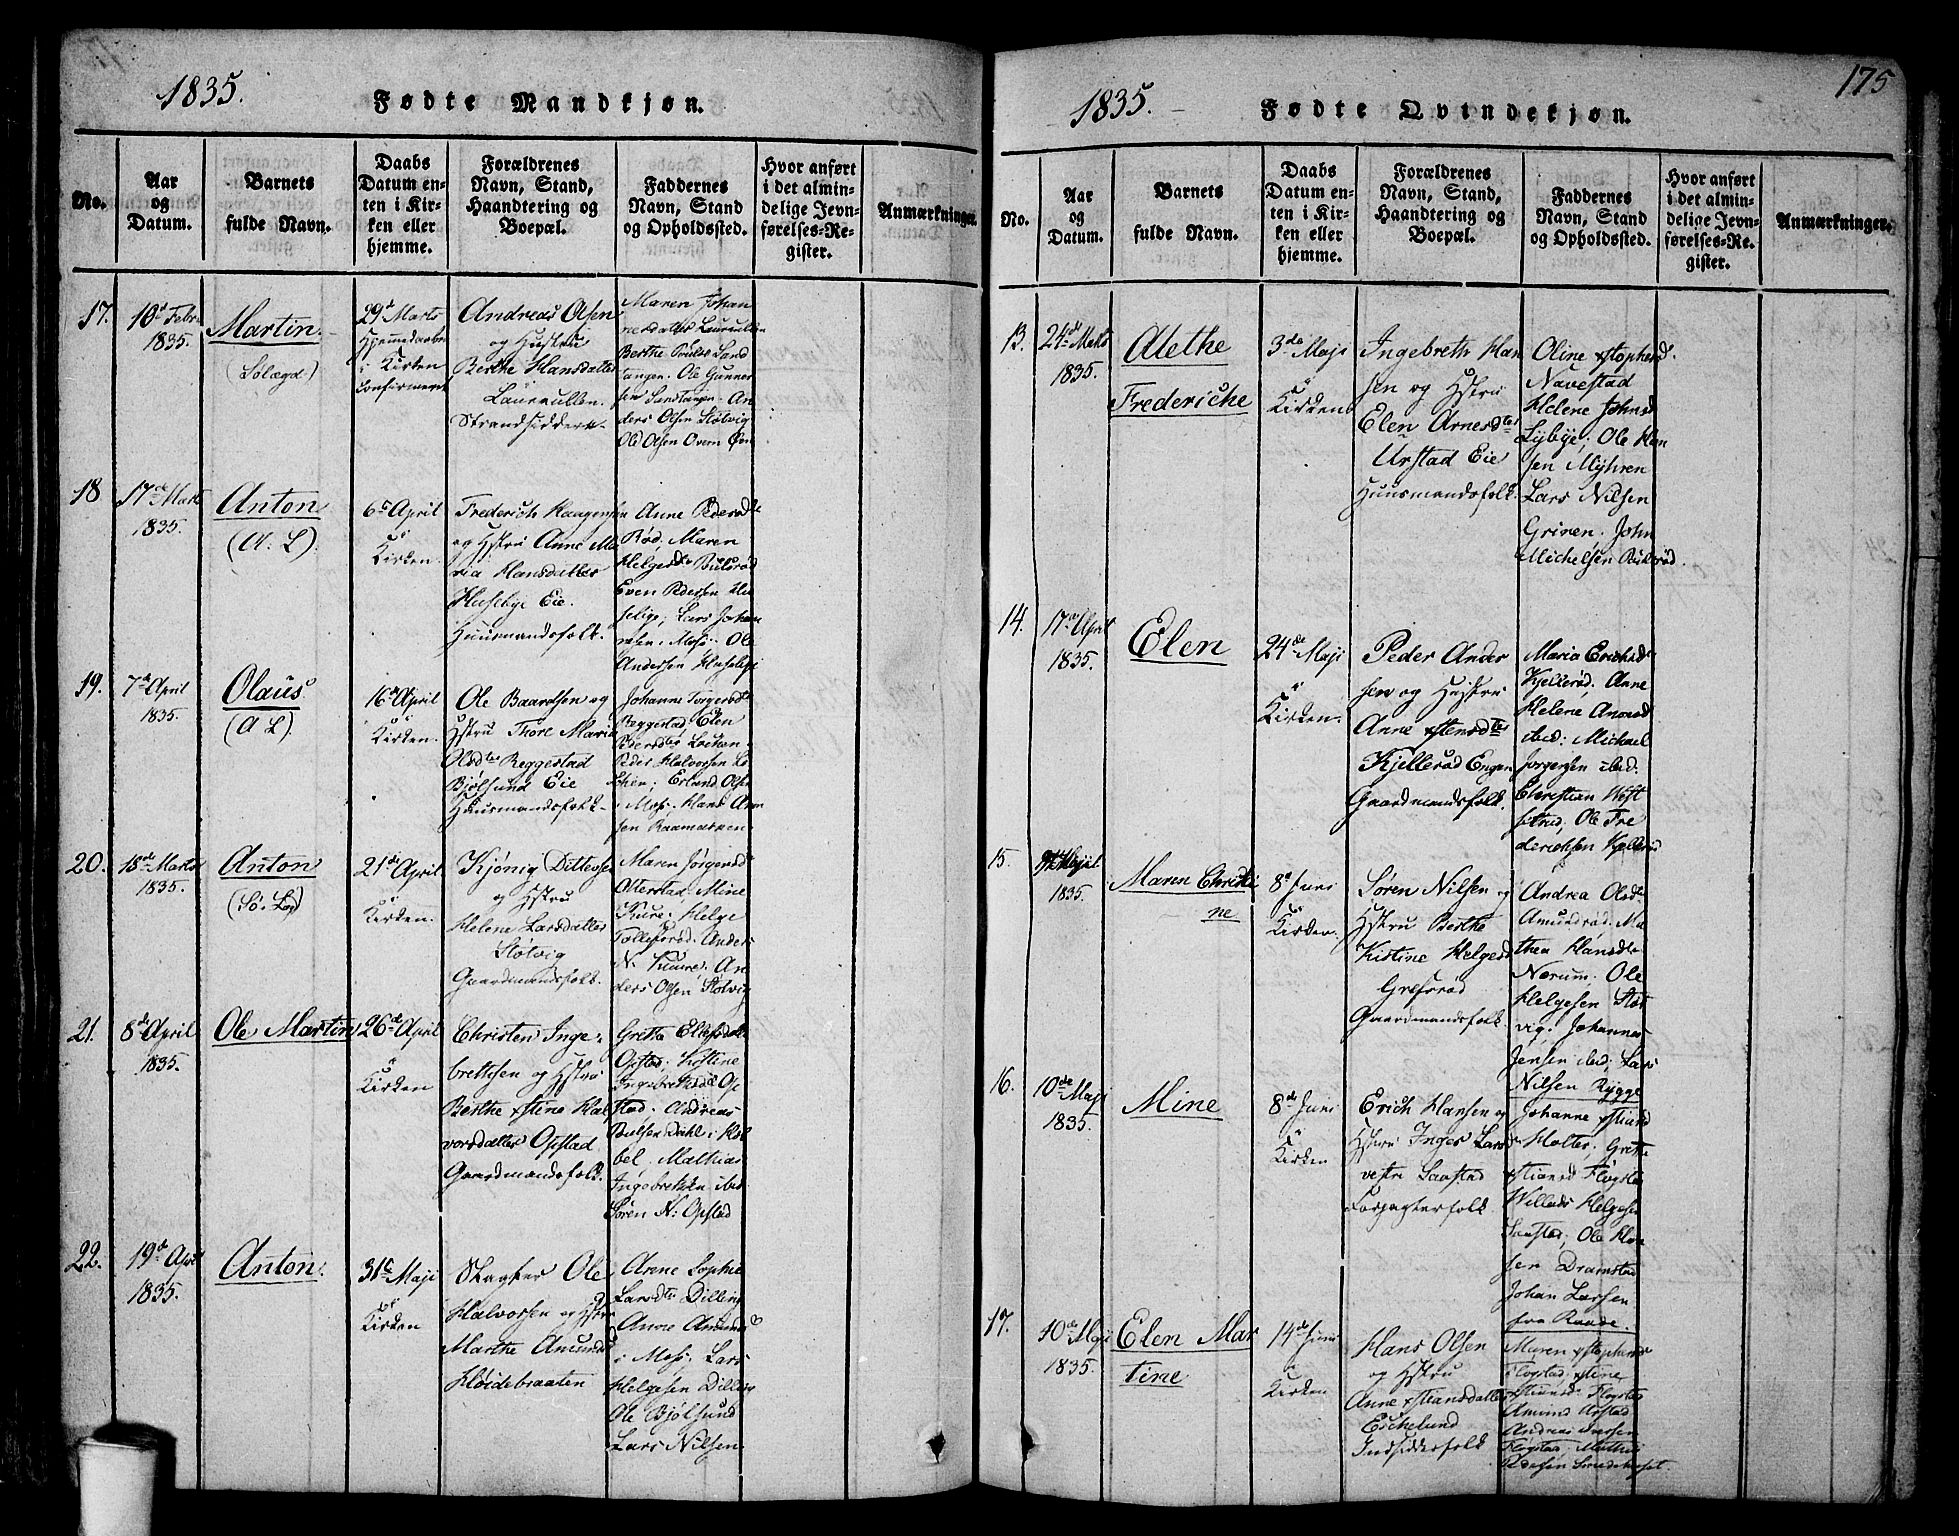 1835.
Fødte Mandkjøn.
No.
Aar
og
Datum.
Barnets
fulde Navn.
Daabs
Datum en-
ten i Kir-
ken eller
hjemme.
Forældrenes
Navn, Stand,
Haandtering og
Boepæl.
Faddernes
Navn, Stand
og Opholdssted.
Hvor anført
i det almin-
delige Jevn-
førelses-Re-
gister.
Anmærkninger.
17.
10d Febr
1835.
Martin
29d Marts
Kirken
Andreas Olsen
og Hustru
Berthe Hansdatter
Laurkullen
Strandsiddere
Maren Johan
nesdatter Laurkullen
Berthe Pouls Sand
tangen. Ole Gunner
sen Sandtangen. An
ders Olsen Støtvig
Ole Olsen Ovem Øen
18
17de Marts
1835.
Anton
(A. L).
6te April
i
Kirken.
Frederich Haagensen
og Hstru Anne Ma
ria Hansdatter
Huseby Eie.
Huusmandsfolk.
Anne Pedersdtr
Rød, Maren
Helgesdtr
Even Pedersen
Lars Johan
nesen, Moss. Ole
Andersen Husebye
19.
7d April
1835.
Olaus
(A L).
16de April
i
Kirken.
Ole Baardsen og
Hstru Thore Maria
Olsdter Reggestad
Bjølsund Eie
Huusmandsfolk
Johanne Torgersdr
Reggestad, Elen
Pedersdtr Lochen.
Peder Halvorsen Lo
chen; Erland Olsen
i Moss. Hans Aren
sen
20.
18de Marts
1835.
Anton
21de April
i
Kirken.
Kjønig Ditlevsen
og Hstru
Helene Larsdatter
Støtvig
Gaardmandsfolk.
Maren Jørgensd
Otterstad, Mine
Kure. Helge
Tollefsrød. Anders
N. Kuure. An
ders Olsen Støtvig
21.
8de April
1835.
Ole Martin
26de April
i
Kirken
Christen Inge-
bretsen og Hstru
Berthe xstine Hal
vorsdatter Opstad
Gaardmandsfolk.
Grethe Ellefsdatt
Opstad; Kistine
Ingebretsdd Op
stad. Andreas
Poulsen Dahl i Ho
bel. Mathias
Ingebretsen ibid
Søren H: Opstad
22.
19de April
1835.
Anton.
31te Maji
i
Kirken
Slagter Ole
Halvorsen og Hstru
Marthe Amunds
Høidebraaten
Anne Sophie
Larsdtr Dilling
Anne Amunds
i Moss. Lars
Helgesen Dilling
Ole Bjølsund
Lars Nilsen
175
1835.
Fødte Qvindekjøn.
No.
Aar
og
Datum.
Barnets
fulde Navn.
Daabs
Datum en-
ten i Kir-
ken eller
hjemme.
Forældrenes
Navn, Stand,
Haandtering og
Boepæl.
Faddernes
Navn, Stand
og Opholdssted.
Hvor anført
i det almin-
delige Jevn-
førelses-Re-
gister.
Anmærkninger.
13.
24de Marts
1835.
Alethe
Frederiche
3de Maji
i
Kirken
Ingebreth Han
sen og Hstru
Elen Arnesdter
Urstad Eie
Huusmandsfolk.
Oline xstophersd.
Navestad
Helene Johnsd
Lybye; Ole Han
sen Myhren
Lars Nilsen
Grinen. John
Michelsen
14.
17de April
1835.
Elen
24de Maji
i
Kirken.
Peder Ander
sen og Hustru
Anne xstensdter
Kjellerød Engen
Gaardmandsfolk.
Maria Erichsdr
Kjellerød. Anne
Helene
ibid: Michael
Jørgensen ibid.
Christian
Ole Fre
derichsen Kjellerød
15.
1835.
Maren Christi
ne
8d Juni
i
Kirken.
Søren Nilsen og
Hstru Berthe
Kistine Helgesd
Grefsrød
Gaardmandsfolk
Andrea Olsdtr
Amundrød. Ma
thea Hansdtr
Nærum. Ole
Helgesen Støt
vig. Johannes
Jensen ibid; Lars
Nilsen Rygge
16.
10de Maji
1835.
Mine
8de Juni
i
Kirken
Erich Hansen og
Hstru Inger Larsd
vestre Saastad
Forpagterfolk
Johanne xstiansd
Holter, Grethe
xstiansd Fløgstad
Willads Helgesen
Saastad; Ole Han
sen Dramstad
Johan Larsen
fra Raade.
17.
10de Maji
1835.
Elen Mar
tine
14de Juni
i
Kirken
Hans Olsen
og Hstru
Anne xstiansdatter
Eschelund
Indsidderfolk
Maren xstophersd
Fløgstad. xstine
xstiansdr Fløgstad
Amund Urstad
Andreas Iversen
Fløgstad. Mathis